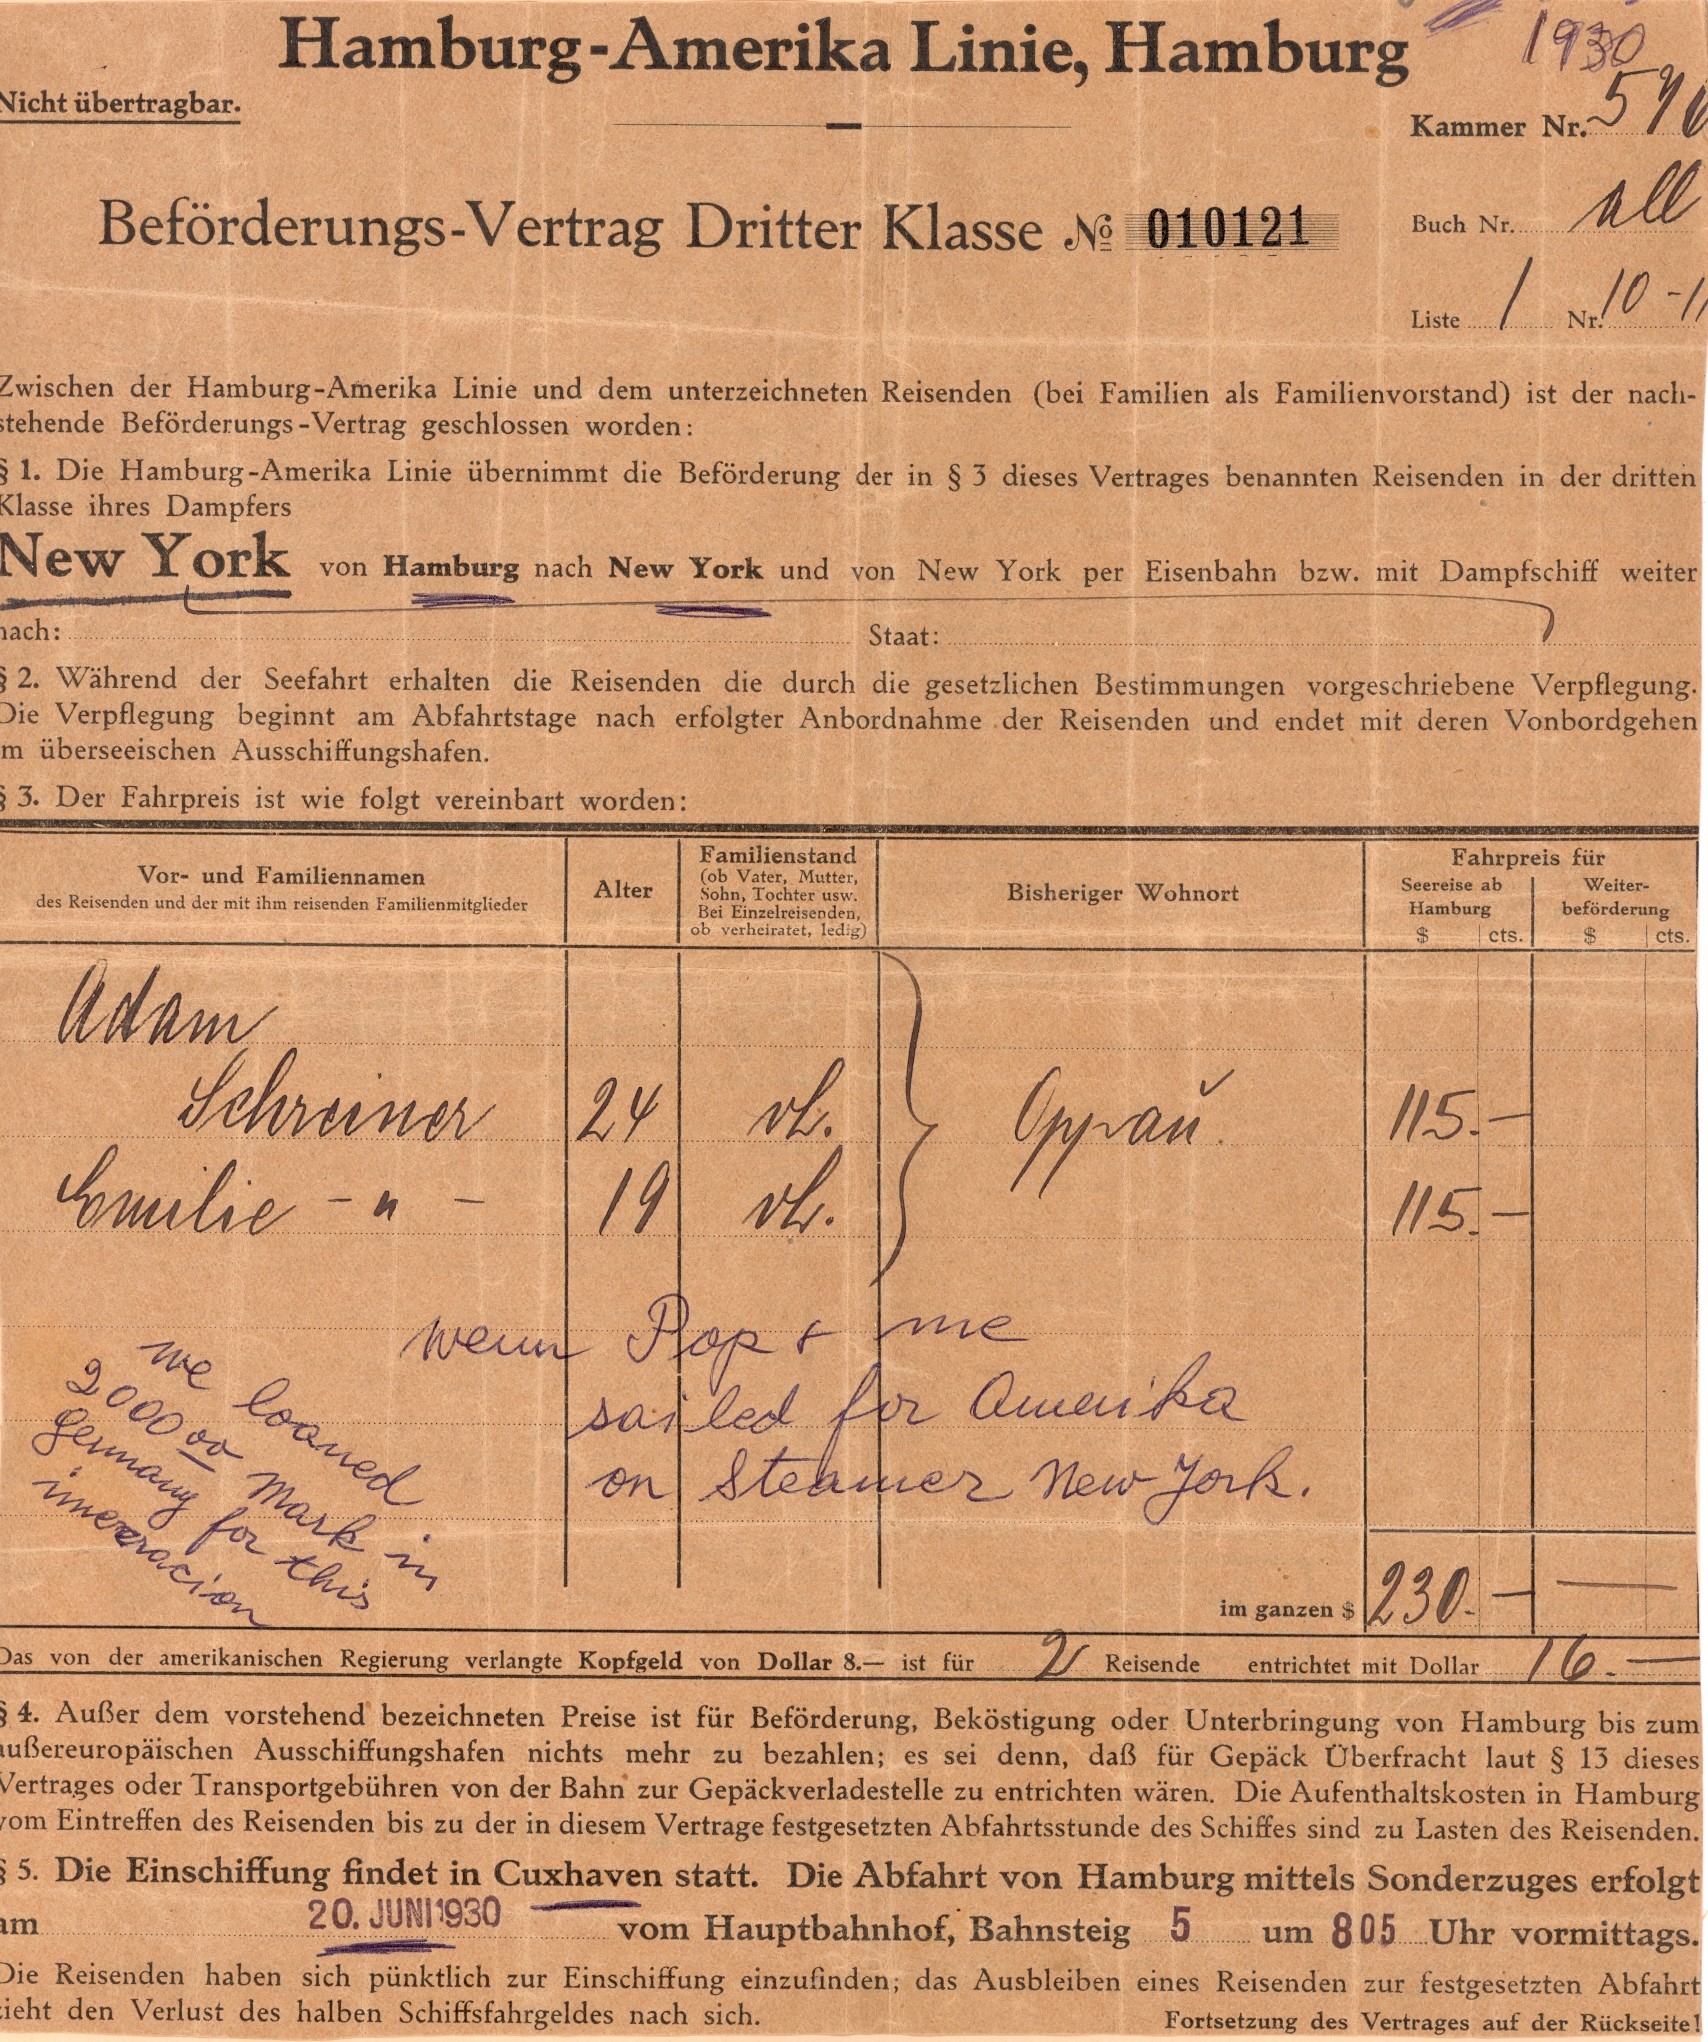 1930
Hamburg-Amerika Linie, Hamburg
Nicht übertragbar.
Kammer Nr.
Beförderungs-Vertrag Dritter Klasse № 010121
Buch Nr. all
Liste 1 Nr. 10-11
Zwischen der Hamburg-Amerika Linie und dem unterzeichneten Reisenden (bei Familien als Familienvorstand) ist der nach-
stehende Beförderungs-Vertrag geschlossen worden:
§ 1. Die Hamburg-Amerika Linie übernimmt die Beförderung der in § 3 dieses Vertrages benannten Reisenden in der dritten
Klasse ihres Dampfers
New York von Hamburg nach New York und von New York per Eisenbahn bzw. mit Dampfschiff weiter
nach: Staat:
§ 2. Während der Seefahrt erhalten die Reisenden die durch die gesetzlichen Bestimmungen vorgeschriebene Verpflegung.
Die Verpflegung beginnt am Abfahrtstage nach erfolgter Anbordnahme der Reisenden und endet mit deren Vonbordgehen
im überseeischen Ausschiffungshafen.
§ 3. Der Fahrpreis ist wie folgt vereinbart worden:
Vor- und Familiennamen
des Reisenden und der mit ihm reisenden Familienmitglieder
Alter
Familienstand
(ob Vater, Mutter,
Sohn, Tochter usw.
Bei Einzelreisenden,
ob verheiratet, ledig)
Bisheriger Wohnort
Fahrpreis für
Seereise ab
Hamburg
Weiter-
beförderung
$ cts. $ cts.
Adam
Schreiner 24 vh. Oppau 115.—
Emilie - " - 19 vh. 115.—
wenn Pop & me
sailed for Amerika
on Steamer New York.
we loaned
2000 00 Mark in
Germany for this
im ganzen $ 230.— —
Das von der amerikanischen Regierung verlangte Kopfgeld von Dollar 8.— ist für 2 Reisende entrichtet mit Dollar 16.—
§ 4. Außer dem vorstehend bezeichneten Preise ist für Beförderung, Beköstigung oder Unterbringung von Hamburg bis zum
außereuropäischen Ausschiffungshafen nichts mehr zu bezahlen; es sei denn, daß für Gepäck Überfracht laut § 13 dieses
Vertrages oder Transportgebühren von der Bahn zur Gepäckverladestelle zu entrichten wären. Die Aufenthaltskosten in Hamburg
vom Eintreffen des Reisenden bis zu der in diesem Vertrage festgesetzten Abfahrtsstunde des Schiffes sind zu Lasten des Reisenden.
§ 5. Die Einschiffung findet in Cuxhaven statt. Die Abfahrt von Hamburg mittels Sonderzuges erfolgt
am 20. JUNI 1930 vom Hauptbahnhof, Bahnsteig 5 um 805 Uhr vormittags.
Die Reisenden haben sich pünktlich zur Einschiffung einzufinden; das Ausbleiben eines Reisenden zur festgesetzten Abfahrt
zieht den Verlust des halben Schiffsfahrgeldes nach sich.
Fortsetzung des Vertrages auf der Rückseite!